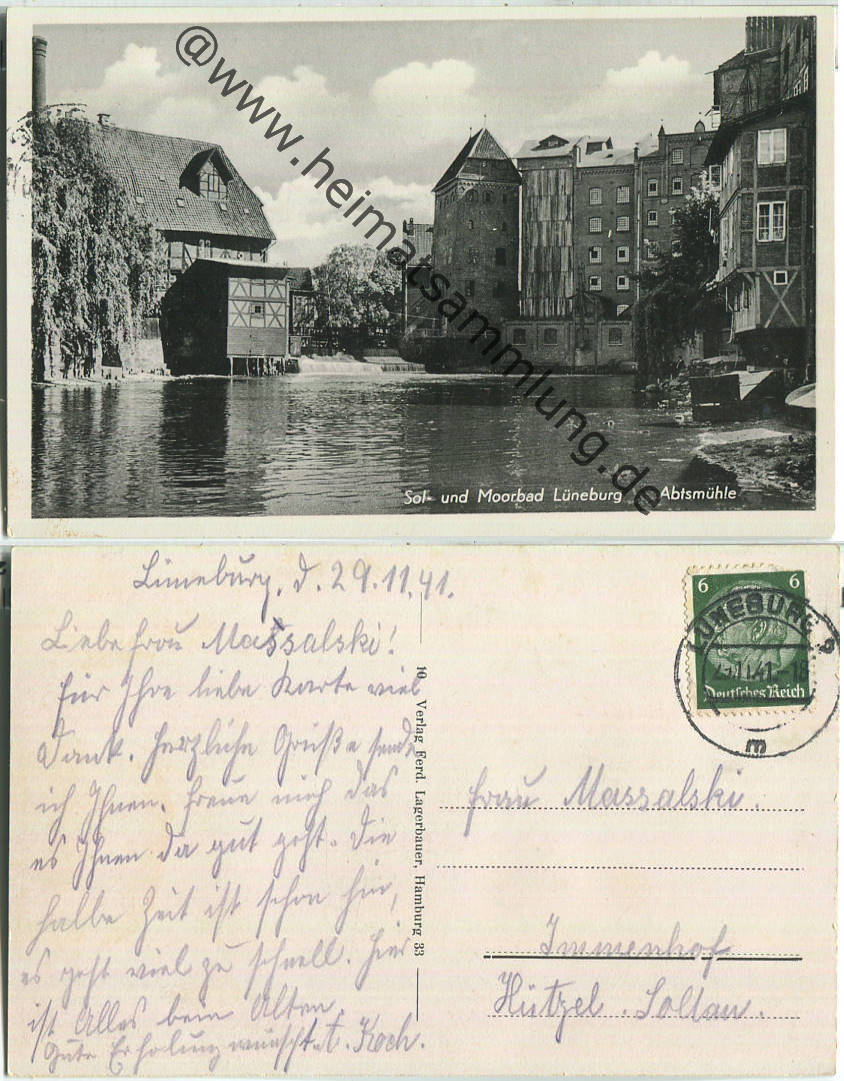 @www.heimatsammlung.de
Sol- und Moorbad Lüneburg Abtsmühle
Lüneburg, d. 29.11.41.
Liebe Frau Massalski!
Für Ihre liebe Karte viel
Dank. Herzliche Grüße sende
ich Ihnen. Freue mich das
es Ihnen da gut geht. Die
halbe Zeit ist schon hin,
es geht viel zu schnell. Hier
ist Alles beim Alten.
Gute Erholung wünscht A. Koch.
10 Verlag Ferd. Lagerbauer, Hamburg 33
6 6
Deutsches Reich
LÜNEBURG 2
11.41.-18
m
Frau Massalski.
Immenhof
Hützel. Soltau.